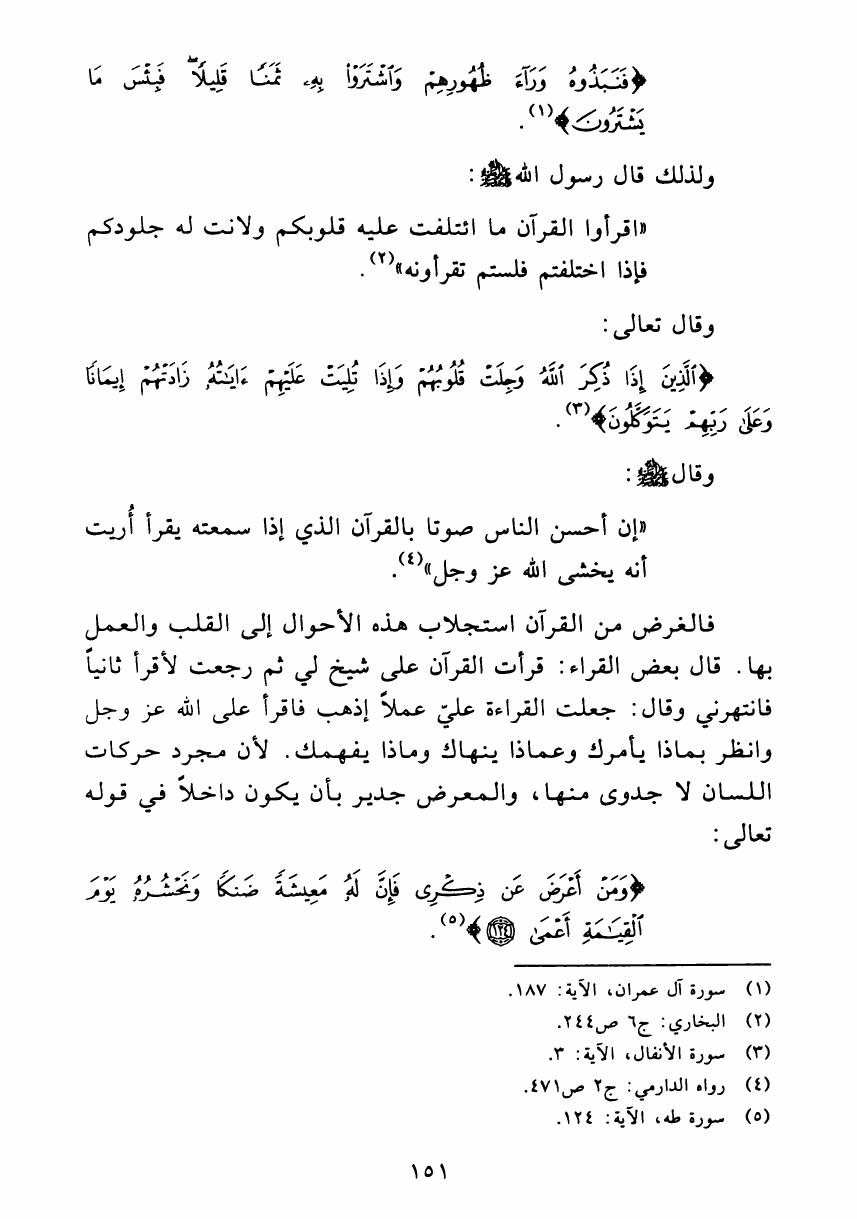 ﴿فَنَبَذُوهُ وَرَآءَ ظُهُورِهِمْ وَٱشْتَرَوْا۟ بِهِۦ ثَمَنًا قَلِيلًا ۖ فَبِئْسَ مَا
يَشْتَرُونَ﴾(١).
ولذلك قال رسول الله ﷺ:
«اقرأوا القرآن ما ائتلفت عليه قلوبكم ولانت له جلودكم
فإذا اختلفتم فلستم تقرأونه»(٢).
وقال تعالى:
﴿ٱلَّذِينَ إِذَا ذُكِرَ ٱللَّهُ وَجِلَتْ قُلُوبُهُمْ وَإِذَا تُلِيَتْ عَلَيْهِمْ ءَايَـٰتُهُۥ زَادَتْهُمْ إِيمَانًا
وَعَلَىٰ رَبِّهِمْ يَتَوَكَّلُونَ﴾(٣).
وقال ﷺ:
«إن أحسن الناس صوتا بالقرآن الذي إذا سمعته يقرأ أُريت
أنه يخشى الله عز وجل»(٤).
فالغرض من القرآن استجلاب هذه الأحوال إلى القلب والعمل
بها. قال بعض القراء: قرأت القرآن على شيخ لي ثم رجعت لأقرأ ثانياً
فانتهرني وقال: جعلت القراءة عليّ عملاً إذهب فاقرأ على الله عز وجل
وانظر بماذا يأمرك وعماذا ينهاك وماذا يفهمك. لأن مجرد حركات
اللسان لا جدوى منها، والمعرض جدير بأن يكون داخلاً في قوله
تعالى:
﴿وَمَنْ أَعْرَضَ عَن ذِكْرِى فَإِنَّ لَهُۥ مَعِيشَةً ضَنكًا وَنَحْشُرُهُۥ يَوْمَ
ٱلْقِيَـٰمَةِ أَعْمَىٰ ١٢٤﴾(٥).
(١) سورة آل عمران، الآية: ١٨٧.
(٢) البخاري: ج٦ ص٢٤٤.
(٣) سورة الأنفال، الآية: ٣.
(٤) رواه الدارمي: ج٢ ص٤٧١.
(٥) سورة طه، الآية: ١٢٤.
١٥١